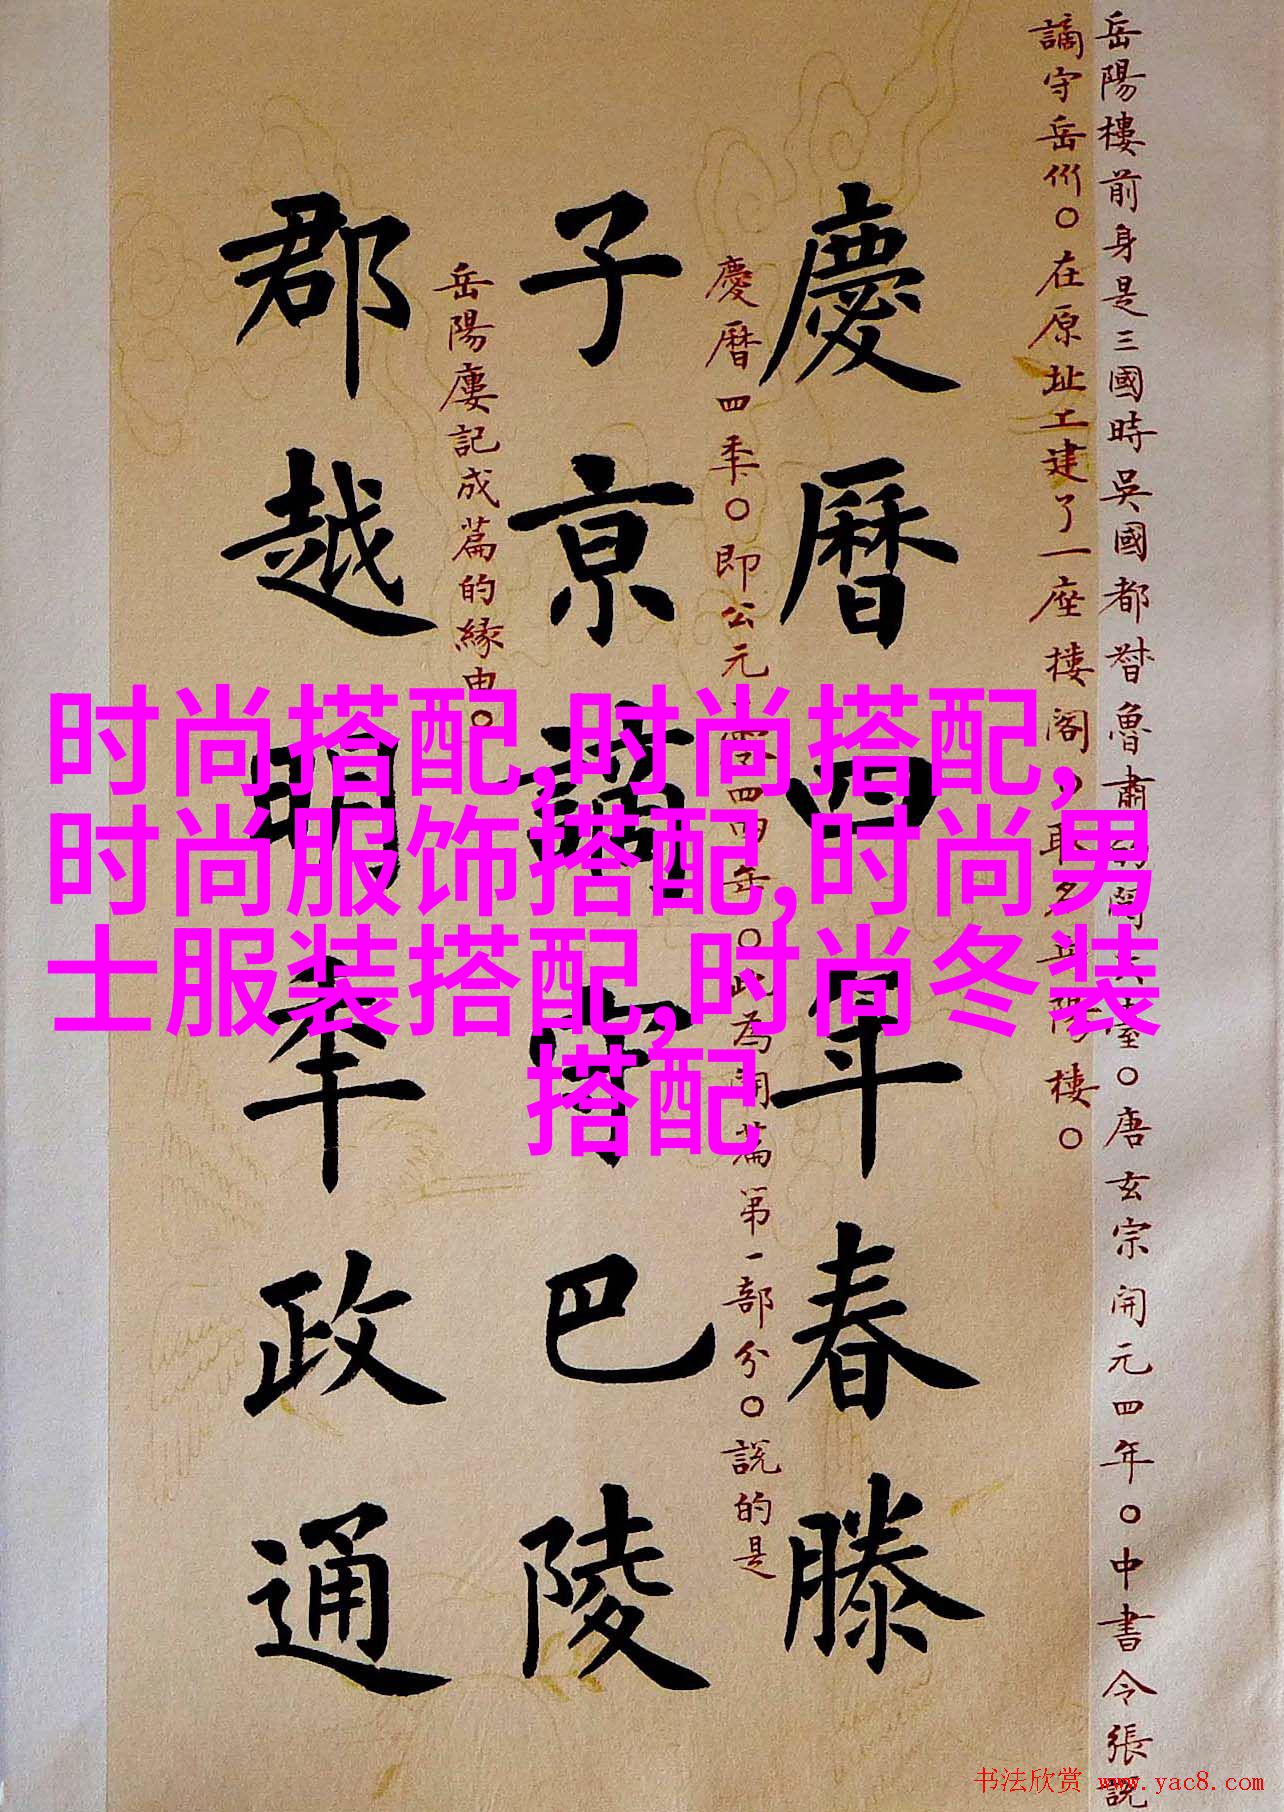 岳陽樓前身是三國時吳國都督魯肅
唐玄宗開元四年中書令張說
謫守岳州在原址工建了一座樓閣取名岳陽樓
慶曆四年春滕
慶曆四年即公元
四四年此為開篇第一部分說的是
子京謫守巴陵
岳陽廔記成篇的緣由
郡越明年政通
时尚搭配,时尚搭配,
时尚服饰搭配,时尚男
士服装搭配,时尚冬装
搭配
书法欣赏 www.yac8.com